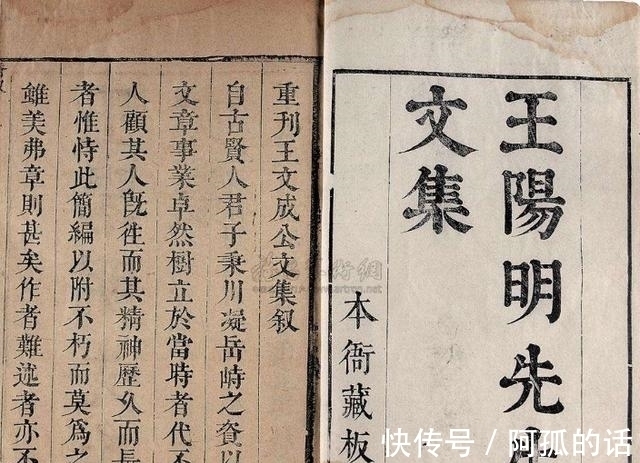 王陽明先生
文集
本衙藏板
重刊王文成公文集叙
自古賢人君子秉川凝岳峙之資以
文章事業卓然樹立於當時者代不
人顧其人旣往而其精神歷久而長
者惟恃此簡編以附不朽而莫爲之
雖美弗章則甚矣作者難述者亦不
快传号/阿孤的话